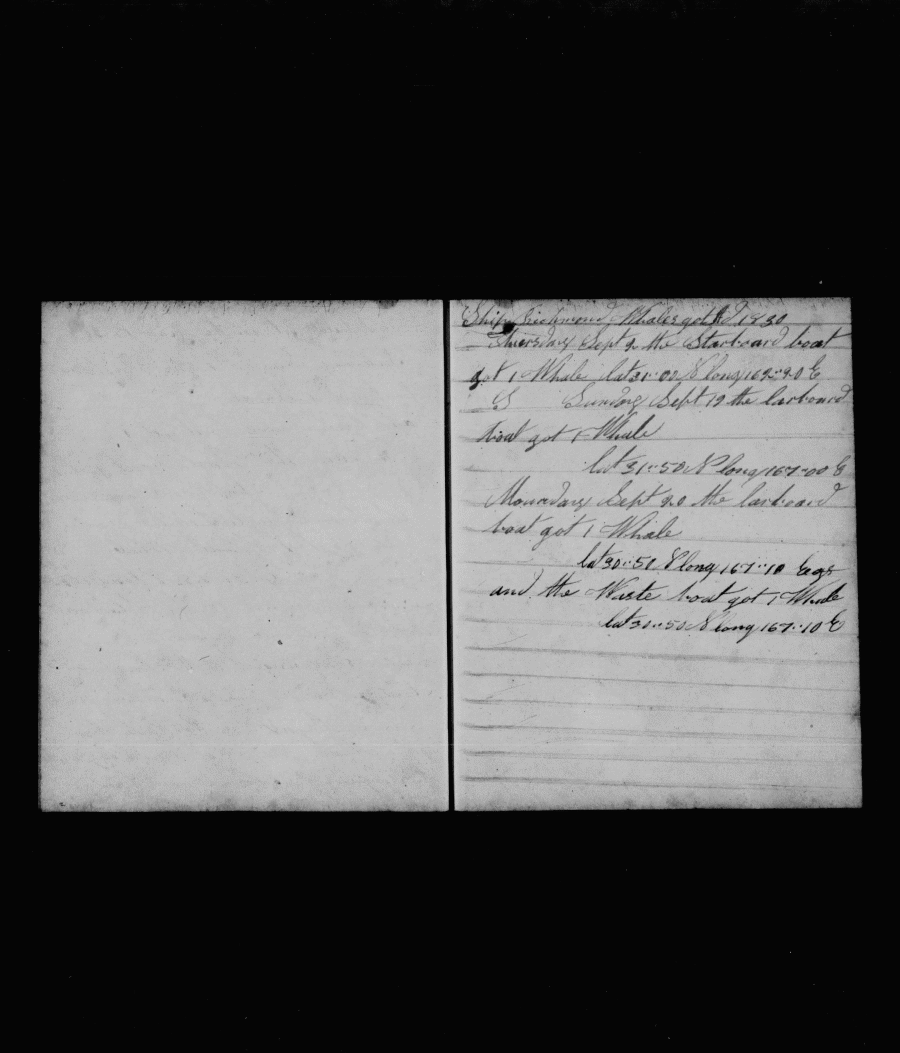 Ship Richmond Whales got 1830
Thursday Sept 2 the Starboard boat
got 1 Whale lat 31-00 N long 162-20 E
Sunday Sept 19 the larboard
boat got 1 Whale
lat 31-50 N long 167-00 E
Mounday Sept 20 the larboard
boat got 1 Whale
lat 30-50 N long 167-10 E
and the Waste boat got 1 Whale
lat 30-50 N long 167-10 E